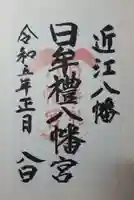 近江八幡
日牟禮八幡宮
令和五年正月八日